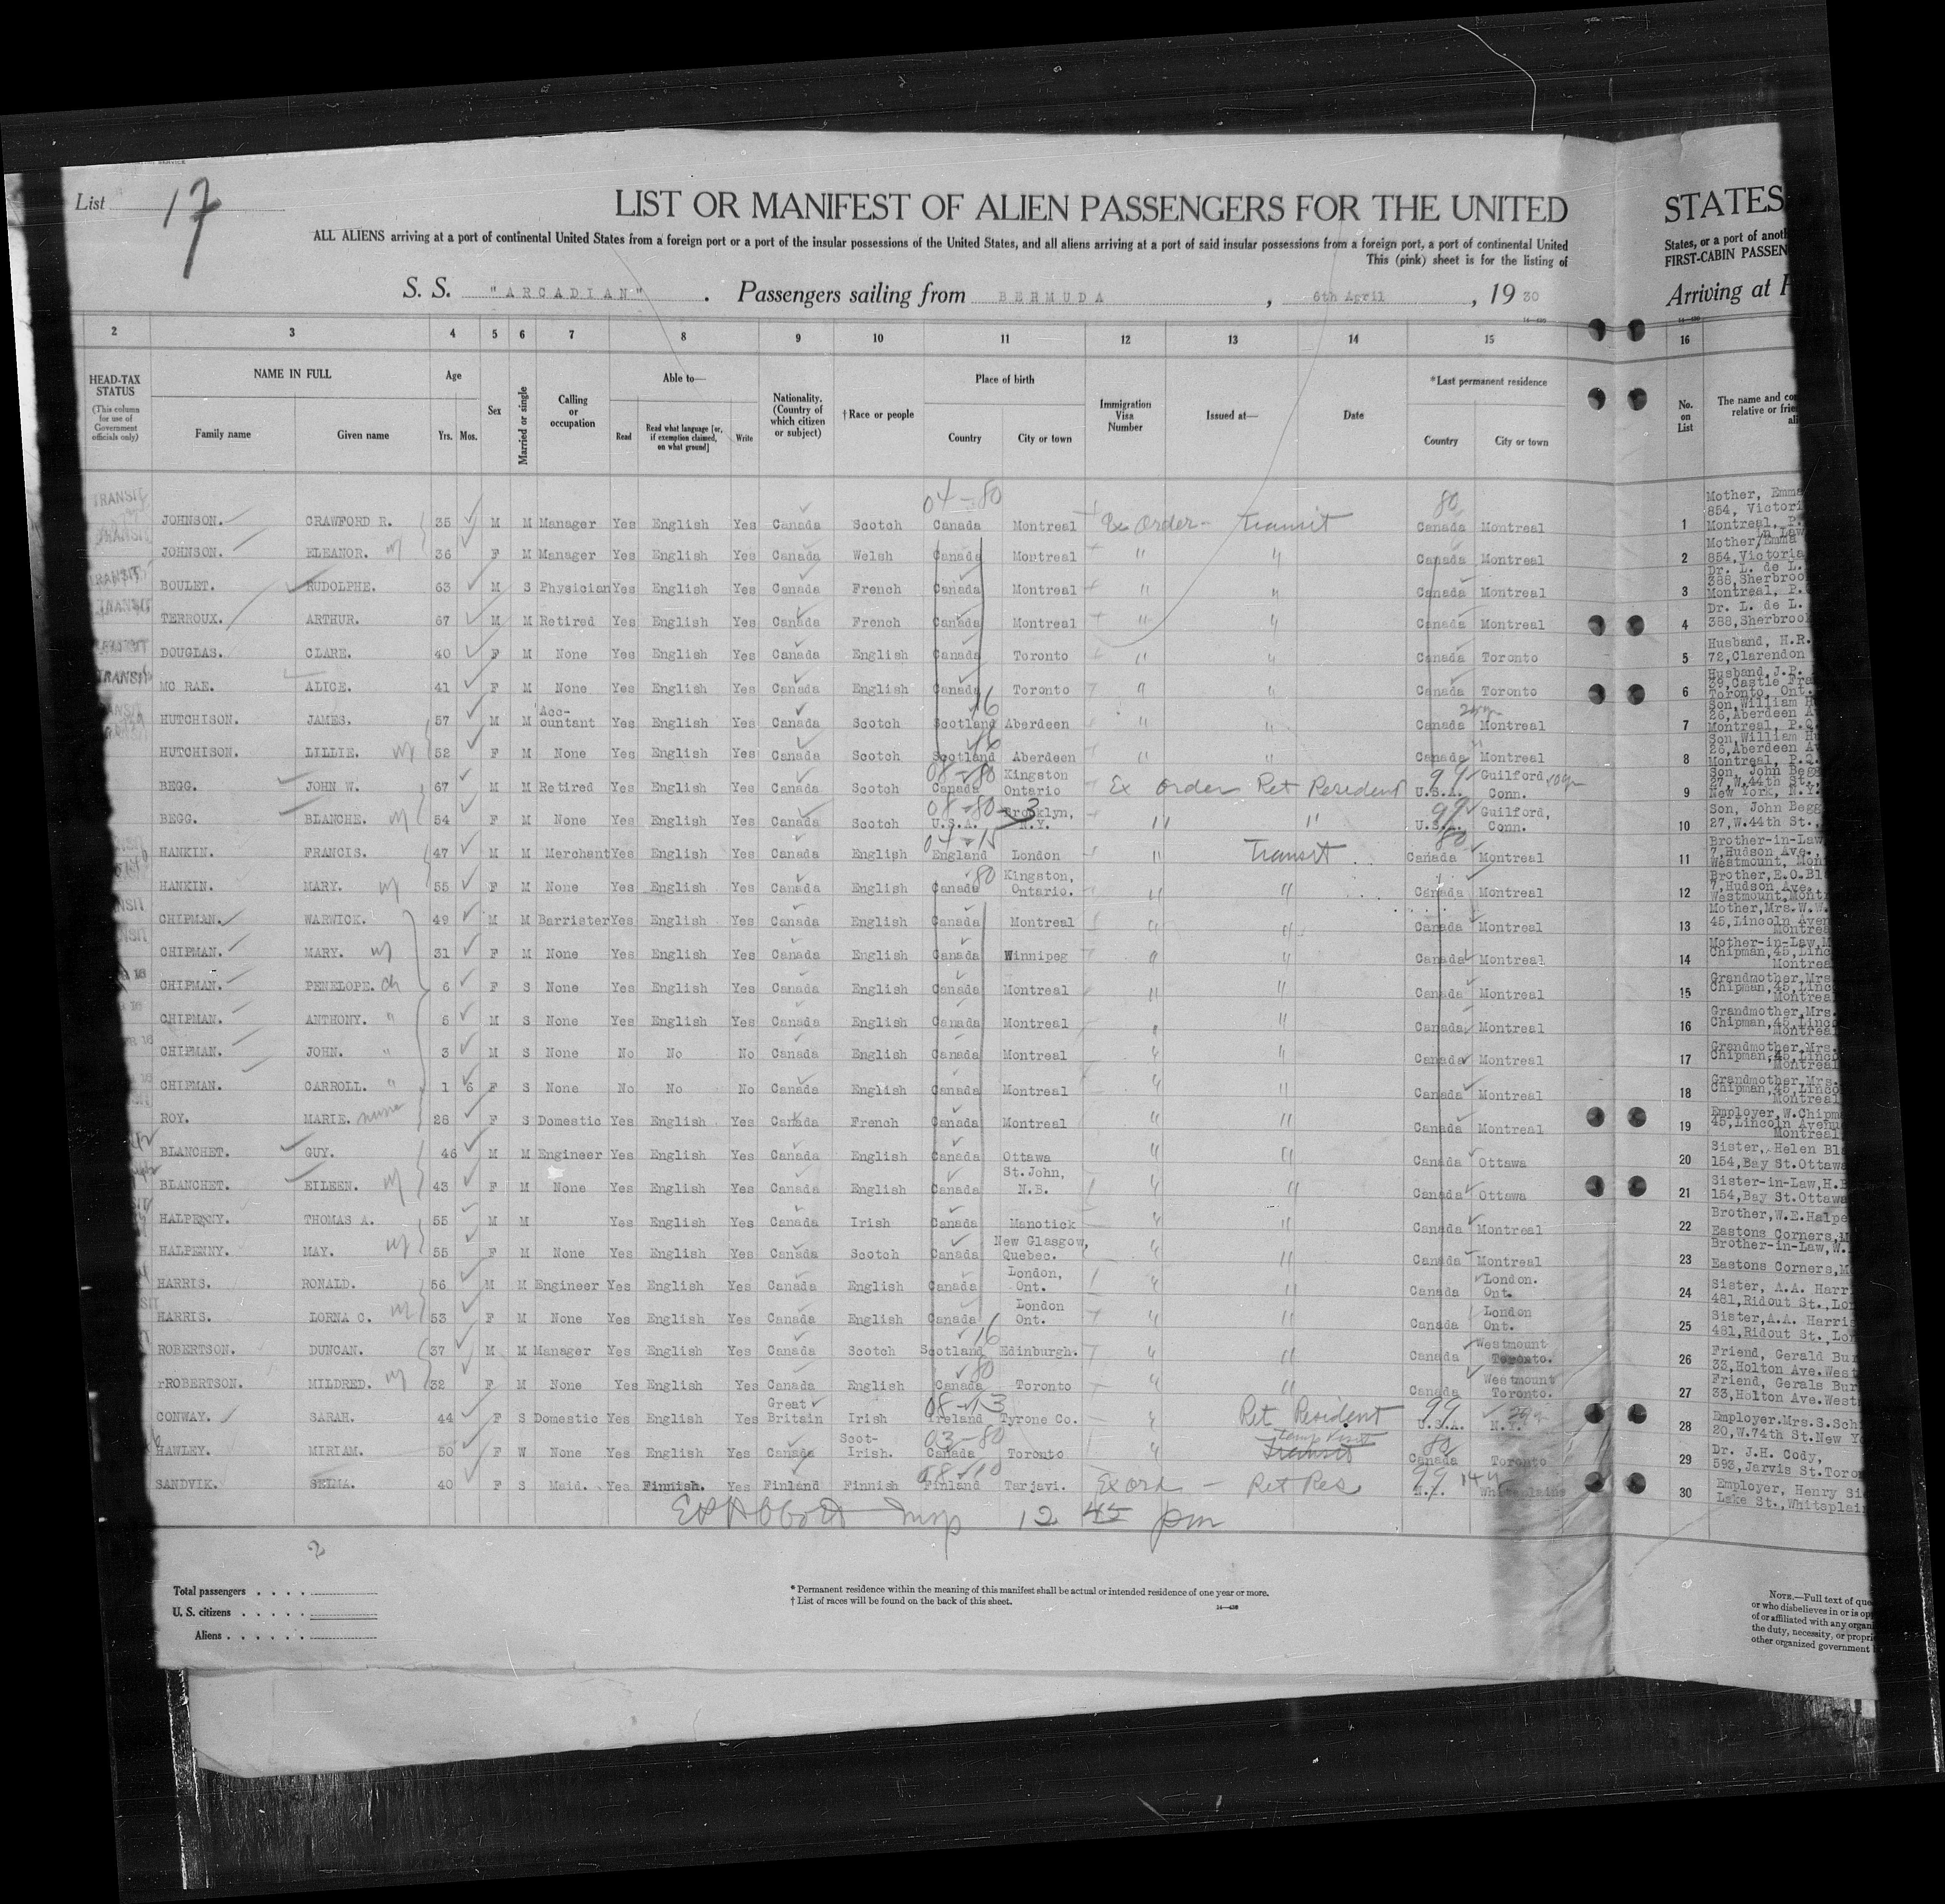 List 17
LIST OR MANIFEST OF ALIEN PASSENGERS FOR THE UNITED STATES
ALL ALIENS arriving at a port of continental United States from a foreign port or a port of the insular possessions of the United States, and all aliens arriving at a port of said insular possessions from a foreign port, a port of continental United States, or a port of
This (pink) sheet is for the listing of FIRST-CABIN
S. S. "ARCADIAN" . Passengers sailing from BERMUDA , 6th April , 19 30 Arriving at
2 3 4 5 6 7 8 9 10 11 12 13 14 15 16
HEAD-TAX STATUS (This column for use of Government officials only)
NAME IN FULL Family name Given name
Age Yrs. Mos.
Sex
Married or single
Calling or occupation
Able to— Read Read what language [or, if exemption claimed, on what ground] Write
Nationality. (Country of which citizen or subject)
† Race or people
Place of birth Country City or town
Immigration Visa Number
Issued at—
Date
*Last permanent residence Country City or town
No. on List
The name and
relative or
TRANSIT JOHNSON. CRAWFORD R. 35 M M Manager Yes English Yes Canada Scotch 04-80 Canada Montreal Ex Order - Transit 80 Canada Montreal 1 Mother, Emma 854, Montreal,
JOHNSON. ELEANOR. W 36 F M Manager Yes English Yes Canada Welsh Canada Montreal " " Canada Montreal 2 Mother in Law Emma 854, Victoria
TRANSIT BOULET. RUDOLPHE. 63 M S Physician Yes English Yes Canada French Canada Montreal " " Canada Montreal 3 Dr. L. de L. 388, Montreal,
TRANSIT TERROUX. ARTHUR. 67 M M Retired Yes English Yes Canada French Canada Montreal " " Canada Montreal 4 Dr. L. de L. 388,
DOUGLAS. CLARE. 40 F M None Yes English Yes Canada English Canada Toronto " " Canada Toronto 5 Husband, H.R. 72, Clarendon
TRANSIT MC RAE. ALICE. 41 F M None Yes English Yes Canada English Canada Toronto " " Canada Toronto 6 Husband, J.P. Castle Toronto, Ont.
HUTCHISON. JAMES. 57 M M Acc-ountant Yes English Yes Canada Scotch 16 Scotland Aberdeen " " Canada Montreal 7 Son, William 26, Aberdeen Montreal, P.Q.
HUTCHISON. LILLIE. W 52 F M None Yes English Yes Canada Scotch 16 Scotland Aberdeen " " Canada Montreal 8 Son, William 26, Aberdeen Montreal, P.Q.
BEGG. JOHN W. 67 M M Retired Yes English Yes Canada Scotch 08-80 Canada Kingston Ontario Ex Order Ret Resident 99 U.S.A. Guilford Conn. 9 Son, John Begg 27, W.44th St., New York, N.Y.
BEGG. BLANCHE. W 54 F M None Yes English Yes Canada Scotch 08-80-3 U.S.A. Brooklyn, N.Y. " " 99 U.S.A. Guilford, Conn. 10 Son, John Begg 27, W.44th St.,
HANKIN. FRANCIS. 47 M M Merchant Yes English Yes Canada English 04-15 England London " Transit 80 Canada Montreal 11 Brother-in-Law 7, Hudson Ave., Westmount,
HANKIN. MARY. W 55 F M None Yes English Yes Canada English 80 Canada Kingston, Ontario. " " Canada Montreal 12 Brother, 7, Hudson Ave. Westmount,
CHIPMAN. WARWICK. 49 M M Barrister Yes English Yes Canada English Canada Montreal " " Canada Montreal 13 Mother, Mrs. W.W. 45, Lincoln
CHIPMAN. MARY. W 31 F M None Yes English Yes Canada English Canada Winnipeg " " Canada Montreal 14 Mother-in-Law, Chipman, 45,
CHIPMAN. PENELOPE. Ch 6 F S None Yes English Yes Canada English Canada Montreal " " Canada Montreal 15 Grandmother, Mrs. Chipman, 45,
CHIPMAN. ANTHONY. " 5 M S None Yes English Yes Canada English Canada Montreal " " Canada Montreal 16 Grandmother, Mrs. Chipman, 45,
CHIPMAN. JOHN. " 3 M S None No No No Canada English Canada Montreal " " Canada Montreal 17 Grandmother, Mrs. Chipman, 45,
CHIPMAN. CARROLL. " 1 6 F S None No No No Canada English Canada Montreal " " Canada Montreal 18 Grandmother, Mrs. Chipman, 45, Montreal
ROY. MARIE. nurse 28 F S Domestic Yes English Yes Canada French Canada Montreal " " Canada Montreal 19 Employer, W. 45, Lincoln Montreal
BLANCHET. GUY. 46 M M Engineer Yes English Yes Canada English Canada Ottawa " " Canada Ottawa 20 Sister, Helen 154, Bay St. Ottawa
BLANCHET. EILEEN. W 43 F M None Yes English Yes Canada English Canada St. John, N.B. " " Canada Ottawa 21 Sister-in-Law, 154, Bay St. Ottawa
HALPENNY. THOMAS A. 55 M M Yes English Yes Canada Irish Canada Manotick " " Canada Montreal 22 Brother, W.E. Eastons Corners,
HALPENNY. MAY. W 55 F M None Yes English Yes Canada Scotch Canada New Glasgow, Quebec. " " Canada Montreal 23 Brother-in-Law, W. Eastons Corners,
HARRIS. RONALD. 56 M M Engineer Yes English Yes Canada English Canada London, Ont. " " Canada London. Ont. 24 Sister, A.A. 481, Ridout St.,
HARRIS. LORNA C. W 53 F M None Yes English Yes Canada English Canada London Ont. " " Canada London Ont. 25 Sister, A.A. Harris 481, Ridout St.,
ROBERTSON. DUNCAN. 37 M M Manager Yes English Yes Canada Scotch 16 Scotland Edinburgh. " " Canada Westmount Toronto. 26 Friend, Gerald 33, Holton Ave.
rROBERTSON. MILDRED. W 32 F M None Yes English Yes Canada English 80 Canada Toronto " " Canada Westmount Toronto. 27 Friend, Gerals 33, Holton Ave.
CONWAY. SARAH. 44 F S Domestic Yes English Yes Great Britain Irish 08-13 Ireland Tyrone Co. " Ret Resident 99 U.S.A. N.Y. 28 Employer. Mrs. S. 20, W.74th St. New
HAWLEY. MIRIAM. 50 F W None Yes English Yes Canada Scot-Irish. 03-80 Canada Toronto " Transit 80 Canada Toronto 29 Dr. J.H. Cody, 593, Jarvis St.
SANDVIK. SELMA. 40 F S Maid. Yes Finnish. Yes Finland Finnish Finland Tarjavi. Ex ord - Ret Res 99 N.Y. 30 Employer, Henry Lake St.,
12 45 pm
2
Total passengers . . . .
U. S. citizens . . . . .
Aliens . . . . . .
* Permanent residence within the meaning of this manifest shall be actual or intended residence of one year or more.
† List of races will be found on the back of this sheet.
NOTE.—Full text of
or who disbelieves in or is
of or affiliated with any
the duty, necessity, or
other organized government